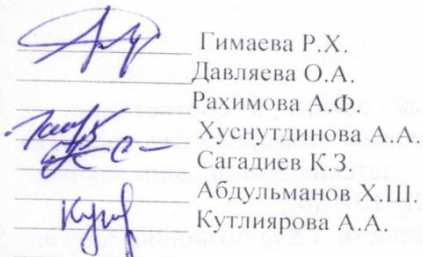 Гимаева Р.Х.
Давляева О.А.
Рахимова А.Ф.
Хуснутдинова А.А.
Сагадиев К.З.
Абдульманов Х.Ш.
Кутлиярова А.А.